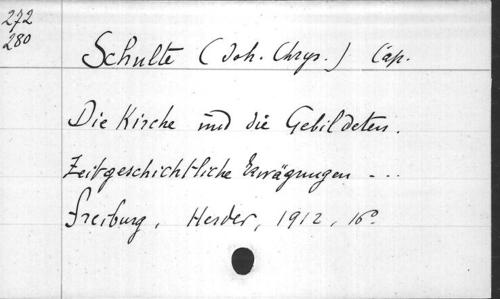 272
280
Schulte (Joh. Chrys.) Cap.
Die Kirche und die Gebildeten.
Zeitgeschichtliche Erwägungen ...
Freiburg, Herder, 1912, 16°